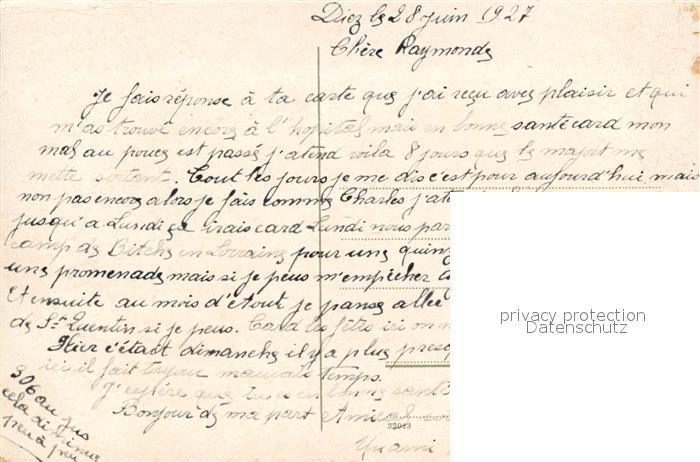 Diez le 28 juin 1927
Chère Raymonde
Je fais réponse à ta carte que j'ai reçu avec plaisir et qui
m'as trouvé encore à l'hopital mais en bonne santé card mon
mal au pouce est passé j'atend voila 8 jours que le majort me
mette sortant. Tout les jours je me dis c'est pour aujourd'hui mais
non pas encore alors je fais comme Charles j'at
jusqu'a Lundi ge irais card Lundi nous par
camp de Bitche en Lorraine pour une quin
une promenade mais si je peus m'empêcher
Et ensuite au mois d'etout je panse allée
de St Quentin si je peus. Card les fêtes ici on
Hier c'étact dimanche il y a plus presq
ici il fait toujour mauvais temps.
J'espère que tu es en bonne santé
Bonjour de ma part et Amical
306 au jus
cela diminue
peu à peu
32063
Un ami
privacy protection
Datenschutz